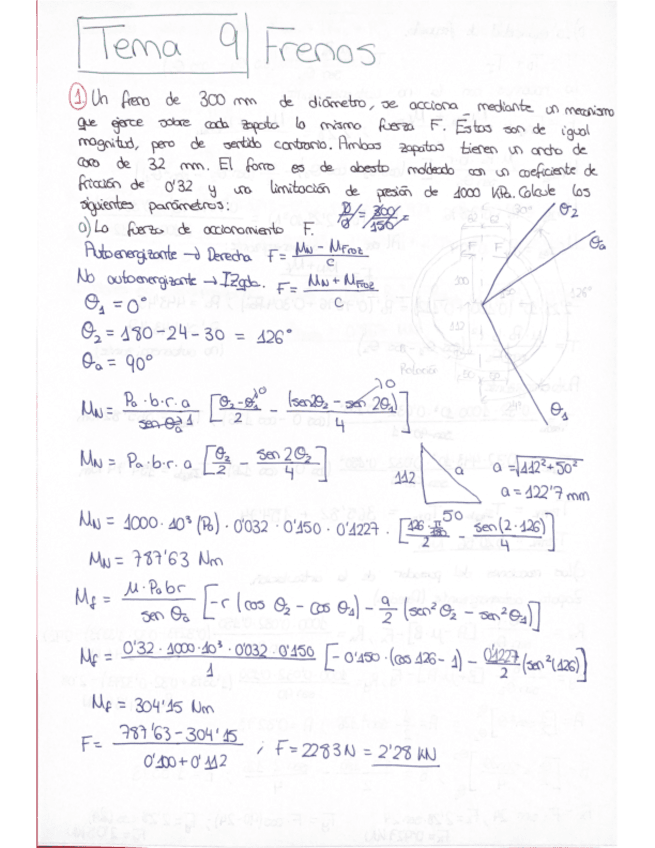 Tema 9 Frenos
1. Un freno de 300 mm de diámetro, se acciona mediante un mecanismo
que ejerce sobre cada zapata la misma fuerza F. Estas son de igual
magnitud, pero de sentido contrario. Ambas zapatas tienen un ancho de
cara de 32 mm. El forro es de abesto moldeado con un coeficiente de
fricción de 0'32 y una limitación de presión de 1000 KPa. Calcule los
siguientes parámetros:
a) La fuerza de accionamiento F.
Autoenergizante → Derecha F = (M_N - M_Froz) / c
No autoenergizante → Izqda. F = (M_N + M_Froz) / c
θ2
θa
θ1
θ1 = 0°
θ2 = 180 - 24 - 30 = 126°
θa = 90°
M_N = (Pa · b · r · a) / (sen θa) [(θ2 - θ1) / 2 - (sen 2θ2 - sen 2θ1) / 4]
M_N = Pa · b · r · a [θ2 / 2 - sen 2θ2 / 4]
112 a 50
a = √(112² + 50²)
a = 122'7 mm
M_N = 1000 · 10³ (Pa) · 0'032 · 0'150 · 0'1227 · [126 π/180 / 2 - sen(2·126) / 4]
M_N = 787'63 Nm
M_f = (μ · Pa b r) / (sen θa) [-r (cos θ2 - cos θ1) - a/2 (sen² θ2 - sen² θ1)]
M_f = (0'32 · 1000 · 10³ · 0'032 · 0'150) / 1 [-0'150 · (cos 126 - 1) - 0'1227/2 (sen² (126))]
M_f = 304'15 Nm
F = (787'63 - 304'15) / (0'100 + 0'112) ; F = 2283 N = 2'28 kN